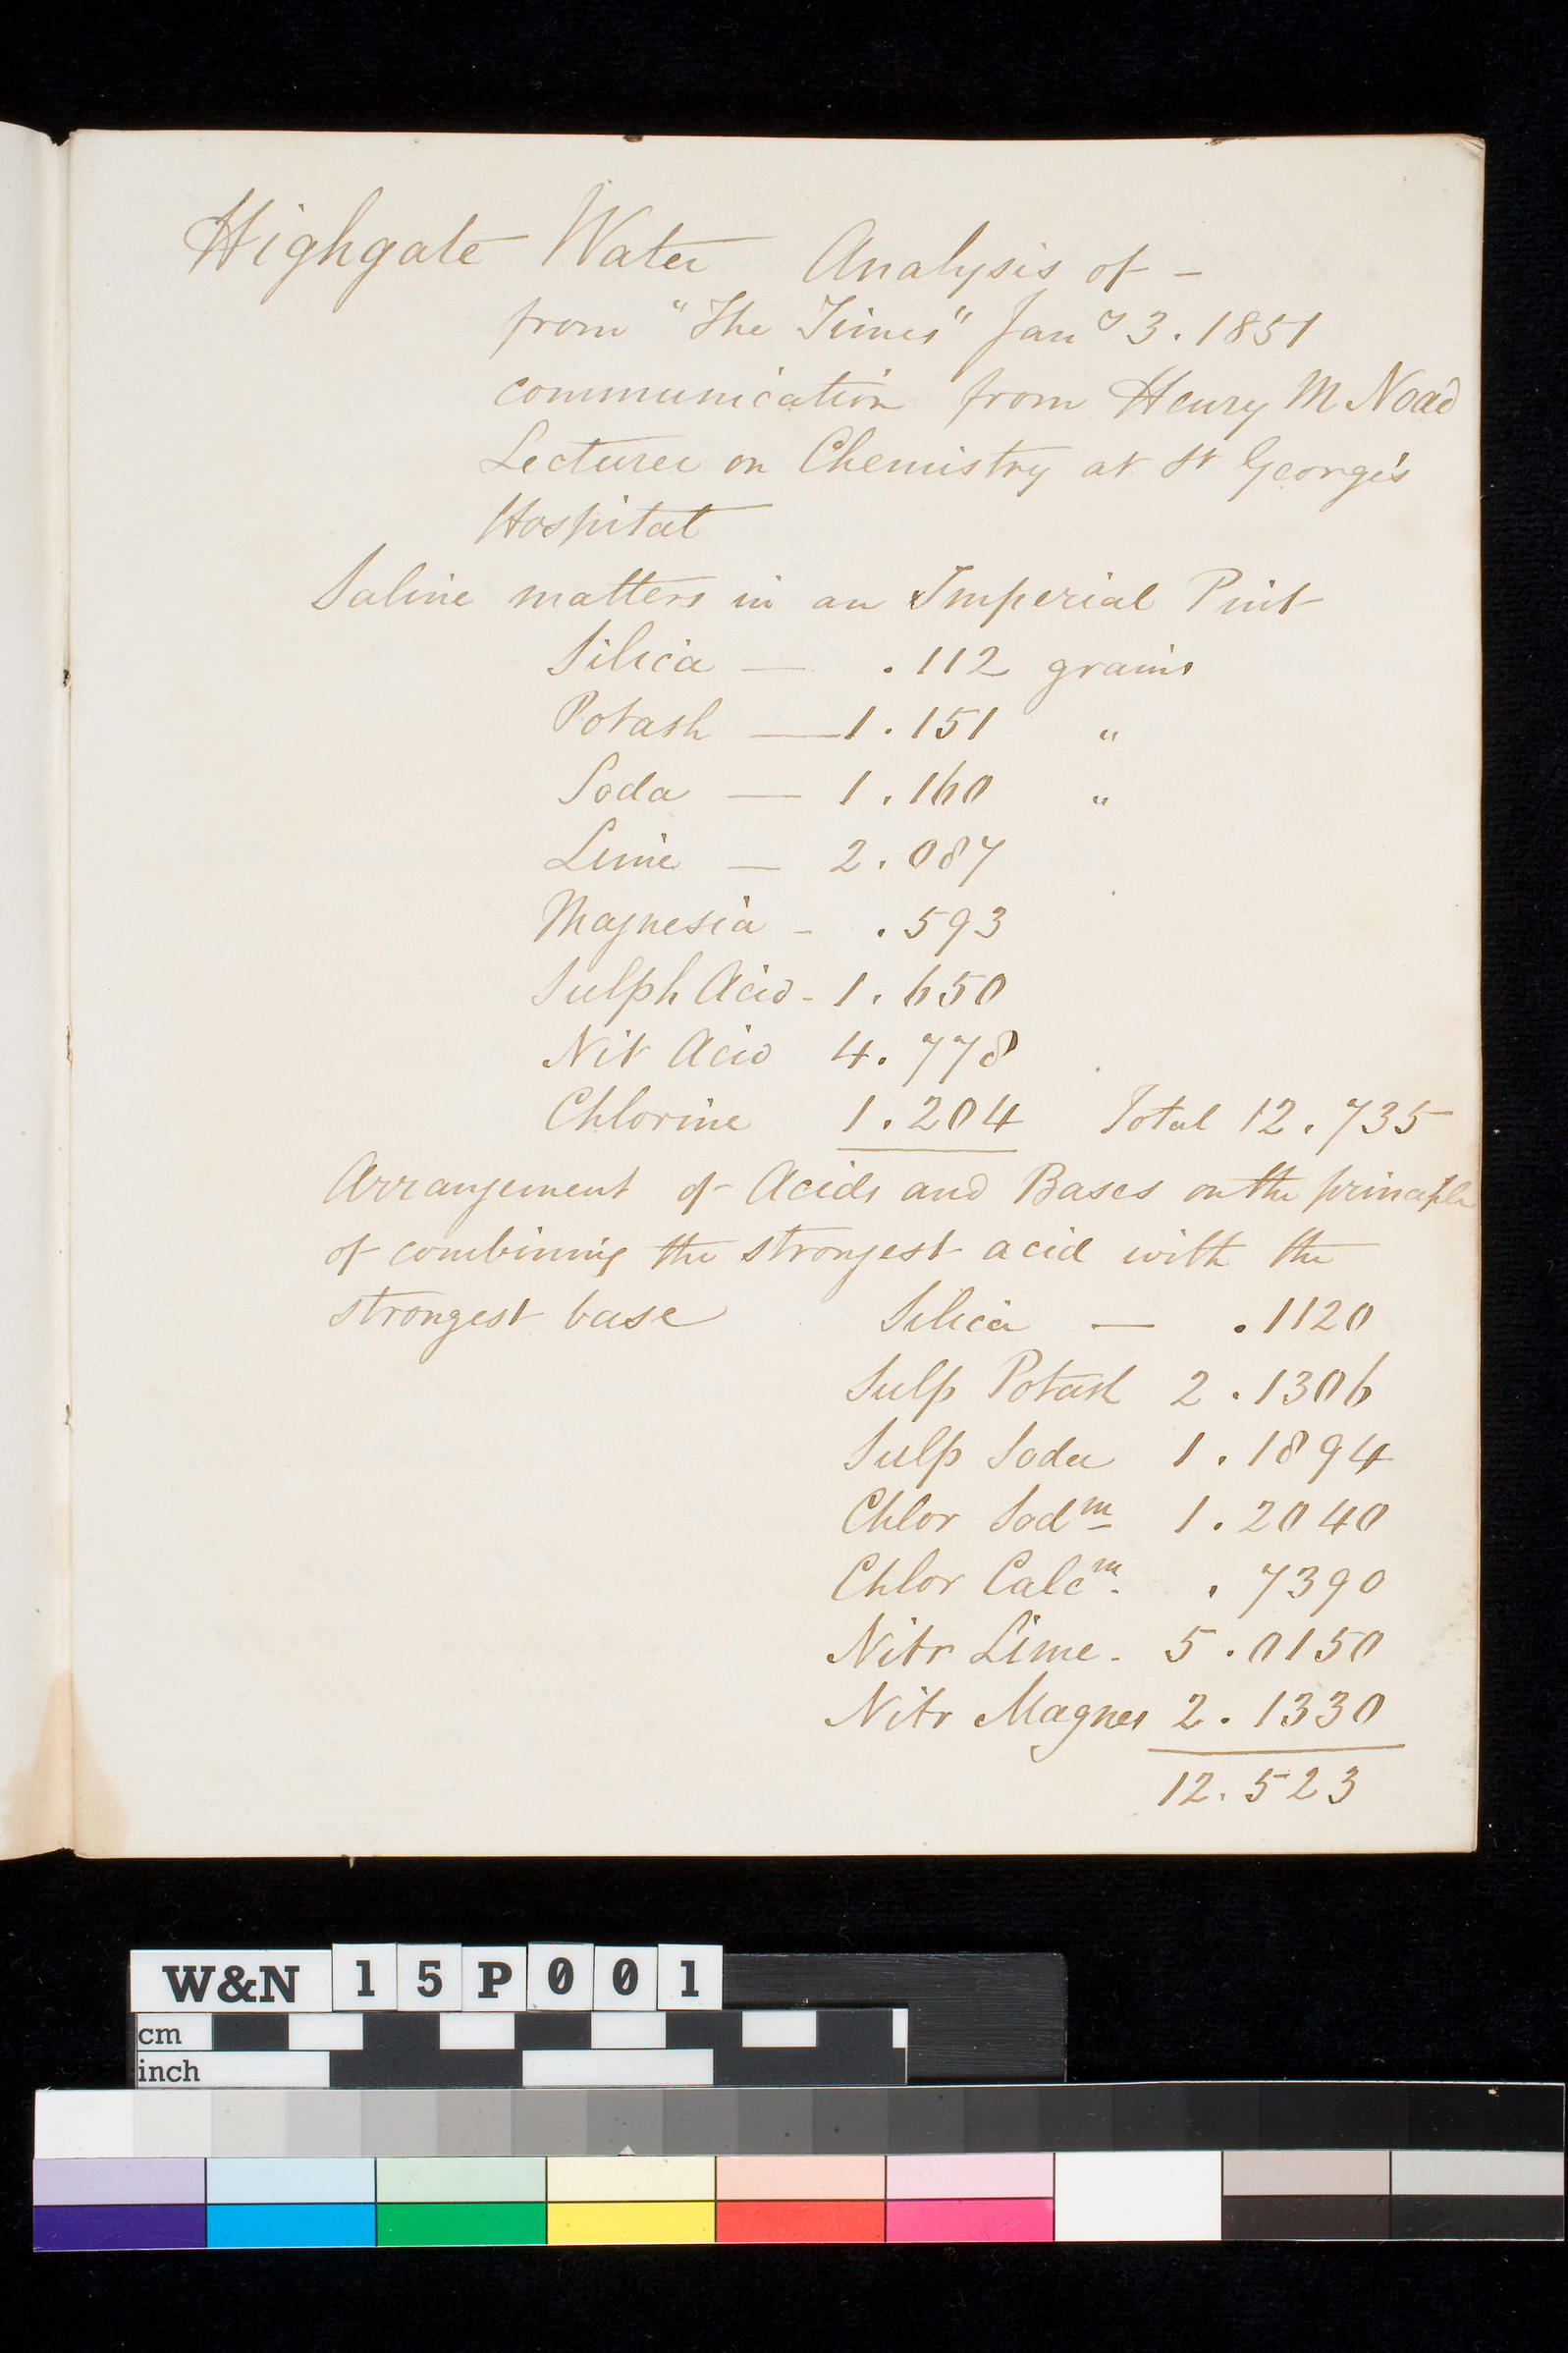 Highgate Water Analysis of -
from "The Times" Jany 3. 1851
communication from Henry M Noad
Lecturer on Chemistry at St George's
Hospital
Saline matters in an Imperial Pint
Silica — .112 grains
Potash — 1.151 "
Soda — 1.160 "
Lime — 2.087
Magnesia - .593
Sulph Acid - 1.650
Nit Acid 4.778
Chlorine 1.204 Total 12.735
Arrangement of Acids and Bases on the principle
of combining the strongest acid with the
strongest base Silica — .1120
Sulp Potash 2.1306
Sulp Soda 1.1894
Chlor Sodm 1.2040
Chlor Calcm. .7390
Nitr Lime. 5.0150
Nitr Magnes 2.1330
12.523
W&N 15P001
cm
inch